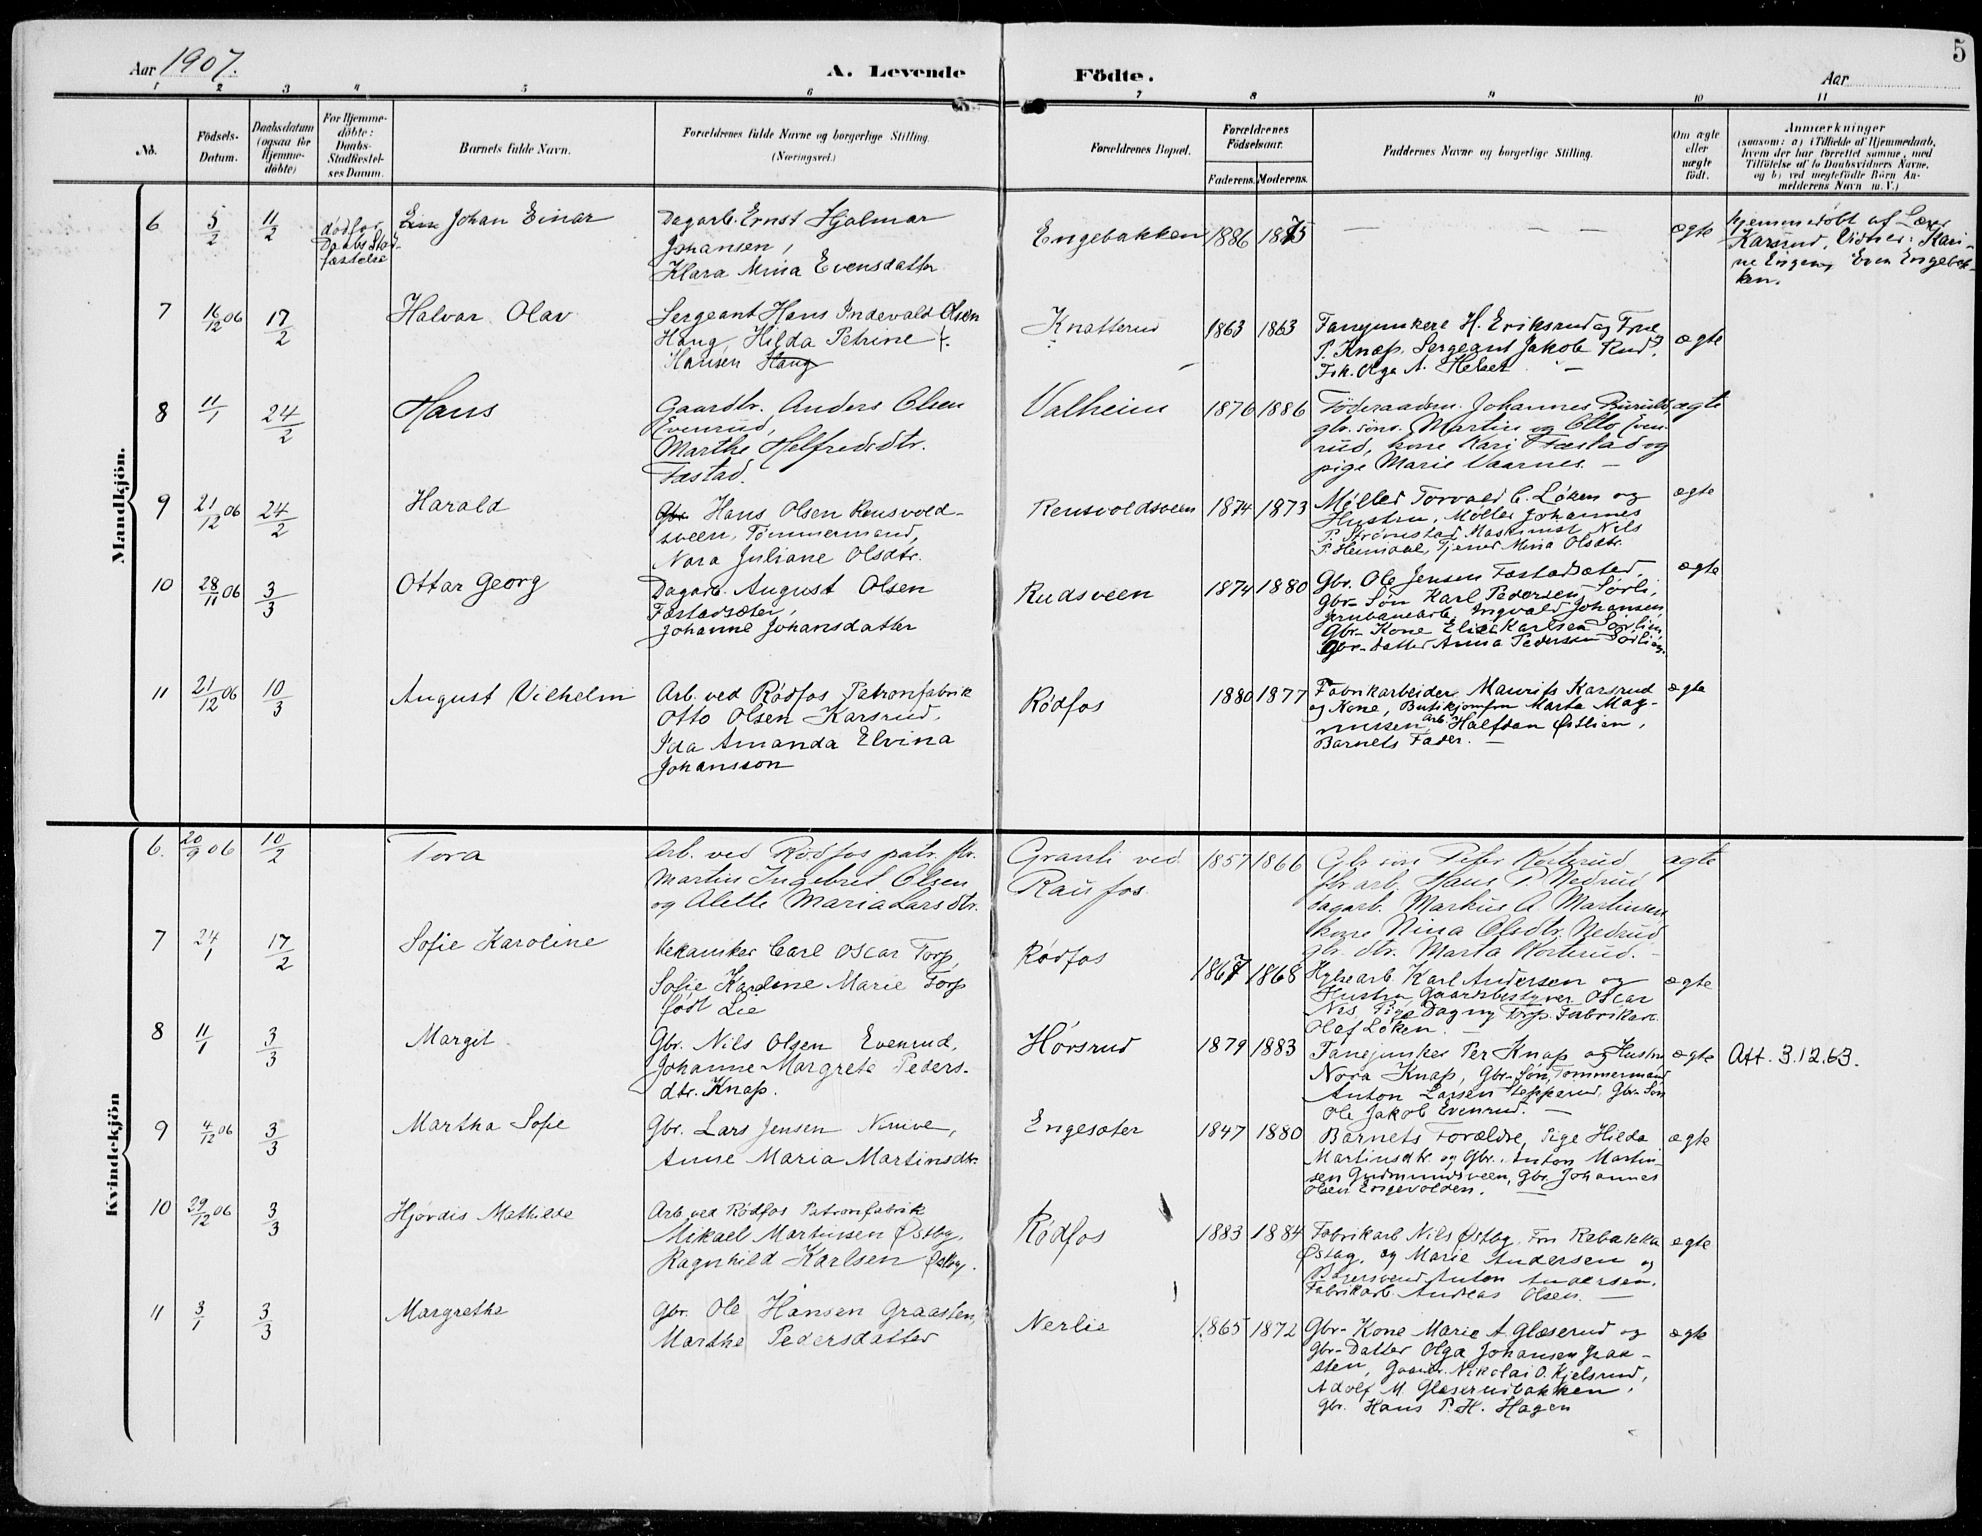 Aar 1907.
A. Levende Födte.
Aar
5
1 2 3 4 5 6 7 8 9 10 11
No.
Födsels-
Datum.
Daabsdatum
(ogsaa for
Hjemme-
döbte)
For Hjemme-
döbte:
Daabs-
Stadfæstel-
ses Datum.
Barnets fulde Navn.
Forældrenes fulde Navne og borgerlige Stilling.
(Næringsvei.)
Forældrenes Bopæl.
Forældrenes
Födselsaar.
Faderens. Moderens.
Faddernes Navne og borgerlige Stilling.
Om ægte
eller
uægte
födt.
Anmærkninger
(saasom: a) i Tilfælde af Hjemmedaab,
hvem der har forrettet samme, med
Tilföielse af to Daabsvidners Navne,
og b) ved uegtefödte Börn An-
melderens Navn m. V.)
Mandkjön.
6 5/2 11/2
død før
Daabs Stad-
fæstelse
Johan Einar
Dagarb. Ernst Hjalmar
Johansen,
Klara Mina Evensdatter
Engebakken 1886 1875 — — — ægte
hjemmedøbt af Lærer
Karsrud, Vidner: Kari-
ne Engen og Even Engebak-
ken.
7 16/12 06 17/2
Halvar Olav
Sergeant Hans Indevald Olsen
Haug, Hilda Petrine
Hansen Haug
Knatterud 1863 1863
Fanejunkere H. Eriksrud og
P. Knap, Sergeant Jakob Rud,
Frk. Olga A. Helset —
ægte
8 11/1 24/2
Hans
Gaardbr. Anders Olsen
Evenrud,
Marthe Helfredsdtr.
Fæstad.
Valheim 1876 1886
Föderaadsm. Johannes
gbr. søns. Martin og Otto Even-
rud, kone Kari Fæstad og
pige Marie Vaarnes. —
ægte
9 21/12 06 24/2
Harald
Gbr Hans Olsen Rensvold-
sveen, Tømmermand,
Nora Juliane Olsdtr.
Rensvoldsveen 1874 1873
Møller Torvald C. Løken og
Hustru, Møller Johannes
P. Strømstad, Maskinist Nils
P. Heimdal, Tjener Mina Olsdtr.
ægte
10 28/11 06 3/3
Ottar Georg
Dagarb. August Olsen
Fæstadsæter,
Johanne Johansdatter
Rudsveen 1874 1880
Gbr. Ole Jensen Fæstadsæter,
Gbr- Søn Karl Pedersen Sørli,
Jernbanearb. Ingvald Johansen,
Gbr- Kone Elise Karlsen Sørlien,
Gbr- Datter Anna Pedersen Sørlien.
ægte
11 21/12 06 10/3
August Vilhelm
Arb. ved Rødfos Patronfabrik
Otto Olsen Karsrud,
Ida Amanda Elvina
Johansson
Rødfos 1880 1877
Fabrikarbeider Maurits Karsrud
og Kone, Butikjomfru Marta Mag-
nussen, Arb. Halfdan Østlien,
Barnets Fader. —
ægte
Kvindekjön
6. 20/9 06 10/2
Tora
Arb. ved Rødfos patr. fbr.
Martin Ingebret Olsen
og Alette Maria Larsdtr.
Granli ved
Raufos
1857 1866
Gbr søn Peter Korterud
gbr arb. Hans P. Nedrud
dagarb. Markus A. Martinsen
kone Nina Olsdtr. Nedrud
gbr. dtr. Marta Korterud. —
ægte
7 24/1 17/2
Sofie Karoline
Mekaniker Carl Oscar Torp,
Sofie Karoline Marie Torp
født Lie
Rødfos
1867 1868
Hylsearb. Karl Andersen og
Hustru, Gaardbestyrer Oscar
Nes, Pige Dagny Torp. Fabrikarb.
Olaf Løken. —
ægte
8 11/1 3/3
Margit
Gbr. Nils Olsen Evenrud,
Johanne Margrete Peders-
dtr. Knap.
Hørsrud 1879 1883
Fanejunker Per Knap og Hustru
Nora Knap, Gbr- Søn, Tømmermand
Anton Larsen Stepperud, Gbr- Søn
Ole Jakob Evenrud. —
ægte Att. 3.12.63.
9 4/12 06 3/3
Martha Sofie
Gbr. Lars Jensen Ninive,
Anne Maria Martinsdtr.
Engesæter 1847 1880
Barnets Forældre, Pige Hilda
Martinsdtr. og Gbr. Anton Martin-
sen Gudmundsveen, Gbr. Johannes
Olsen Engevolden. —
ægte
10 29/12 06 3/3
Hjørdis Mathilde
Arb. ved Rødfos Patronfabrik
Mikael Martinsen Østby,
Ragnhild Karlsen Østby.
Rødfos 1883 1884
Fabrikarb Nils Østby, Fru Rebakka
Østby, og Marie Andersen og
Anton Andersen.
Fabrikarb. Andreas Olsen. —
ægte
11 3/1 3/3
Margrethe
Gbr. Ole Hansen Graasten,
Marthe Pedersdatter
Nerlie 1865 1872
Gbr- Kone Marie A. Glæserud og
Gbr- Datter Olga Johansen Graa-
sten, Gaardbr. Nikolai O. Kjelsrud,
Adolf M. Glæserudbakken,
Gbr. Hans P. H. Hagen
ægte